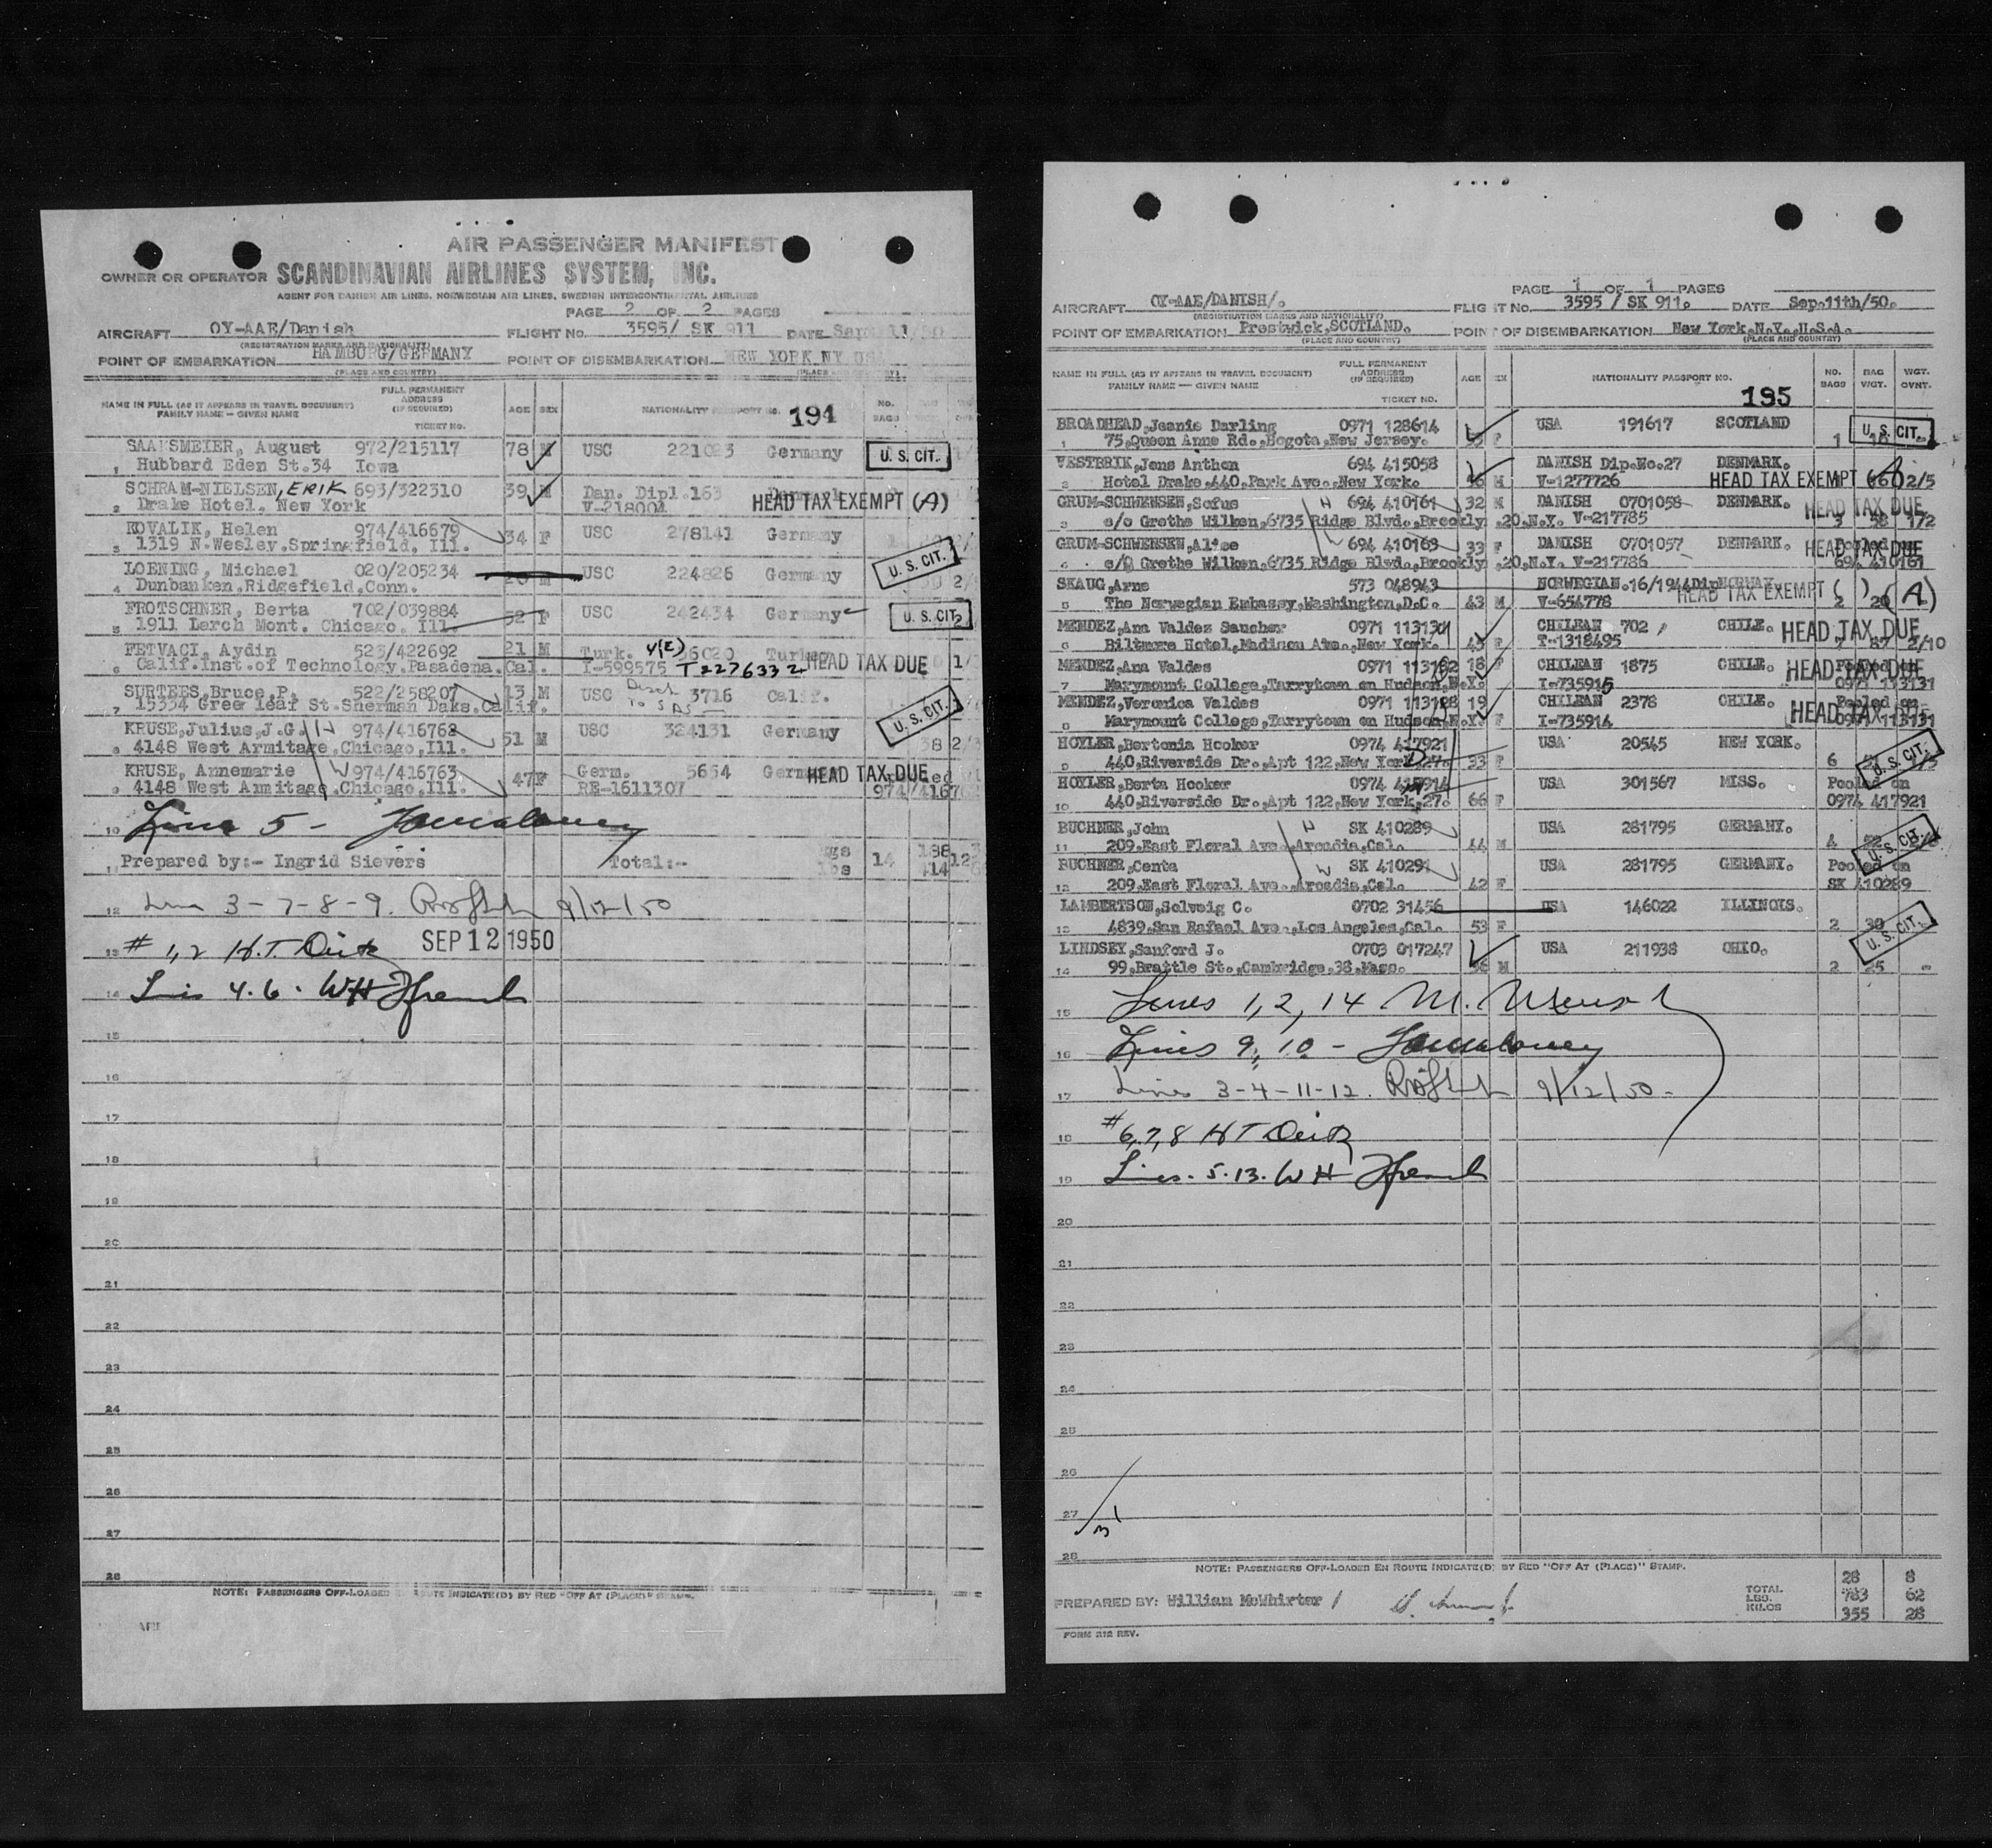 AIR PASSENGER MANIFEST
OWNER OR OPERATOR SCANDINAVIAN AIRLINES SYSTEM, INC.
AGENT FOR DANISH AIR LINES, NORWEGIAN AIR LINES, SWEDISH INTERCONTINENTAL AIRLINES
PAGE 2 OF 2 PAGES
AIRCRAFT OY-AAE/Danish FLIGHT No. 3595/ SK 911 DATE
(REGISTRATION MARKS AND NATIONALITY)
POINT OF EMBARKATION HAMBURG/GERMANY POINT OF DISEMBARKATION NEW YORK NY USA
(PLACE AND COUNTRY)
NAME IN FULL (AS IT APPEARS IN TRAVEL DOCUMENT) FAMILY NAME — GIVEN NAME FULL PERMANENT ADDRESS (IF REQUIRED) TICKET NO. AGE SEX NATIONALITY PASSPORT NO. 194 NO. BAGS
SAATSMEIER, August 972/215117 78 M USC 221023 Germany U. S. CIT.
1 Hubbard Eden St.34 Iowa
SCHRAM-NIELSEN, ERIK 693/322310 39 M Dan. Dipl.163 HEAD TAX EXEMPT (A)
2 Drake Hotel, New York V-218004
KOVALIK, Helen 974/416679 34 F USC 278141 Germany
3 1319 N.Wesley,Springfield, Ill.
LOENING, Michael 020/205234 M USC 224826 Germany U. S. CIT.
4 Dunbanken,Ridgefield,Conn.
FROTSCHNER, Berta 702/039884 52 F USC 242434 Germany U. S. CIT.
5 1911 Lerch Mont. Chicago, Ill.
FETVACI, Aydin 523/422692 21 M Turk. 4(E) 36020 Turkey HEAD TAX DUE
6 Calif.Inst.of Technology,Pasadena,Cal. I-599575 T2276332
SURTEES,Bruce,P. 522/258207 13 M USC 3716 Calif.
7 15334 Gree leaf St.Sherman Oaks,Calif.
KRUSE,Julius,J.G. H 974/416762 51 M USC 324131 Germany U. S. CIT.
8 4148 West Armitage,Chicago,Ill. 38
KRUSE, Annemarie W 974/416763 47 F Germ. 5654 HEAD TAX DUE
9 4148 West Armitage,Chicago,Ill. RE-1611307
10 Line 5 -
11 Prepared by:- Ingrid Sievers Total:- kgs lbs 14 188 414
12 Line 3-7-8-9. 9/12/50
13 # 1,2 H.T. Deitz SEP 12 1950
14 Lines 4.6. WH French
15
16
17
18
19
20
21
22
23
24
25
26
27
28
NOTE: PASSENGERS OFF-LOADED EN ROUTE INDICATE(D) BY RED "OFF AT (PLACE)" STAMP.
PAGE 1 OF 1 PAGES
AIRCRAFT OY-AAE/DANISH/. FLIGHT No. 3595 / SK 911. DATE Sep.11th/50.
(REGISTRATION MARKS AND NATIONALITY)
POINT OF EMBARKATION Prestwick,SCOTLAND. POINT OF DISEMBARKATION New York.N.Y.U.S.A.
(PLACE AND COUNTRY) (PLACE AND COUNTRY)
NAME IN FULL (AS IT APPEARS IN TRAVEL DOCUMENT) FAMILY NAME — GIVEN NAME FULL PERMANENT ADDRESS (IF REQUIRED) TICKET NO. AGE SEX NATIONALITY PASSPORT NO. 195 NO. BAGS BAG WGT. WGT. OVNT.
BROADHEAD,Jeanie Darling 0971 128614 USA 191617 SCOTLAND U. S. CIT.
1 75,Queen Anne Rd.,Bogota,New Jersey. F 1
VESTBRIK,Jens Anthon 694 415058 DANISH Dip.No.27 DENMARK.
2 Hotel Drake,440,Park Ave.,New York. 46 M V-1277726 HEAD TAX EXEMPT 2/5
GRUM-SCHWENSEN,Sofus H 694 410161 32 M DANISH 0701058 DENMARK. HEAD TAX DUE
3 c/o Grethe Wilken,6735 Ridge Blvd.,Brooklyn,20,N.Y. V-217785 3 58 172
GRUM-SCHWENSEN,Alice W 694 410163 33 F DANISH 0701057 DENMARK. HEAD TAX DUE Pooled on
4 c/o Grethe Wilken,6735 Ridge Blvd.,Brooklyn,20,N.Y. V-217786 694 410161
SKAUG,Arne 573 048943 NORWEGIAN.16/1944Dip NORWAY. HEAD TAX EXEMPT (A)
5 The Norwegian Embassy,Washington,D.C. 43 M V-654778 2 20
MENDEZ,Ana Valdez Sancher 0971 113131 CHILEAN 702 CHILE. HEAD TAX DUE
6 Biltmore Hotel,Madison Ave.,New York. 43 F T-1318495 7 87 2/10
MENDEZ,Ana Valdes 0971 113132 18 F CHILEAN 1875 CHILE. HEAD TAX DUE Pooled on
7 Marymount College,Tarrytown on Hudson,N.Y. I-735915 0971 113131
MENDEZ,Veronica Valdes 0971 113128 19 F CHILEAN 2378 CHILE. HEAD TAX DUE Pooled on
8 Marymount College,Tarrytown on Hudson,N.Y. I-735914 0971 113131
HOYLER,Bertonia Hooker 0974 417921 USA 20545 NEW YORK. U. S. CIT.
9 440,Riverside Dr.,Apt 122,New York,27. 33 F 6
HOYLER,Berta Hooker 0974 USA 301567 MISS. Pooled on
10 440,Riverside Dr.,Apt 122,New York,27. 66 F 0974 417921
BUCHNER,John H SK 410289 USA 281795 GERMANY. U. S. CIT.
11 209,East Floral Ave.,Arcadia,Cal. 44 M 4 52
BUCHNER,Centa W SK 410291 USA 281795 GERMANY. Pooled on
12 209,East Floral Ave.,Arcadia,Cal. 42 F SK 410289
LAMBERTSON,Solveig C. 0702 31456 USA 146022 ILLINOIS. U. S. CIT.
13 4839,San Rafael Ave.,Los Angeles,Cal. 53 F 2 30
LINDSEY,Sanford J. 0703 017247 USA 211938 OHIO.
14 99,Brattle St.,Cambridge,38,Mass. 56 M 2 25 -
15 Lines 1, 2, 14 M.
16 Lines 9, 10 -
17 Lines 3-4-11-12. 9/12/50-
18 #6,7,8 HT Deitz
19 Lines. 5.13. WH French
20
21
22
23
24
25
26
27
28
NOTE: PASSENGERS OFF-LOADED EN ROUTE INDICATE(D) BY RED "OFF AT (PLACE)" STAMP.
PREPARED BY: William McWhirter /
TOTAL 28 8
LBS. 783 62
KILOS 355 28
FORM 212 REV.